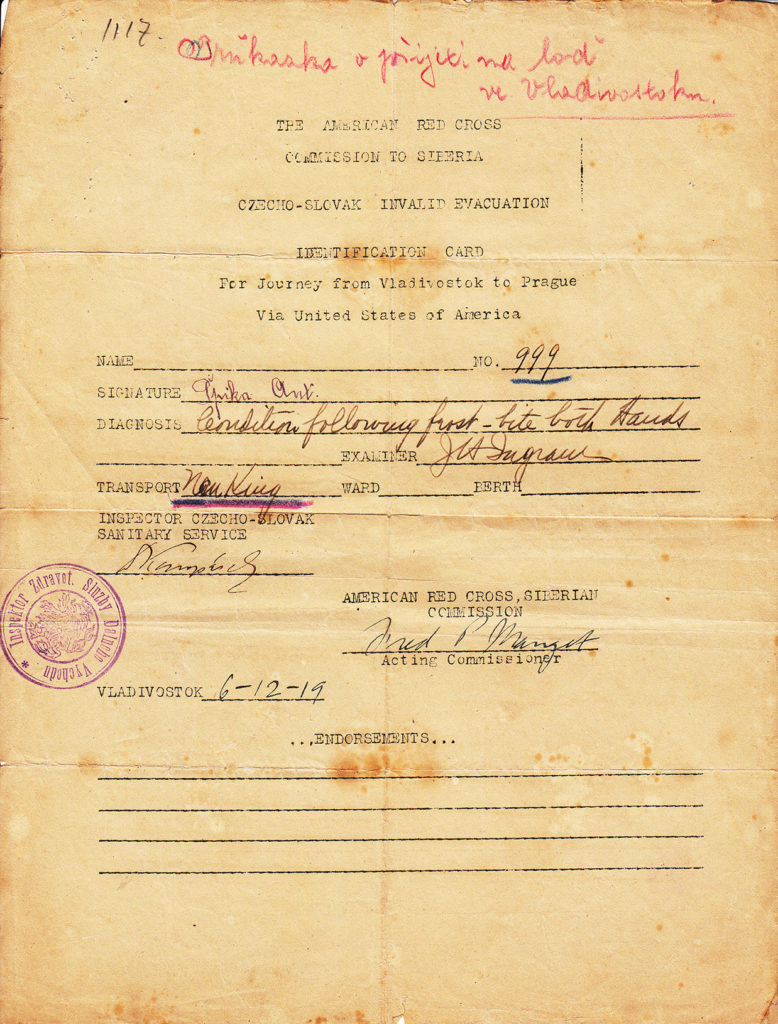 1117.
Průkazka o přijetí na loď
ve Vladivostoku.
THE AMERICAN RED CROSS
COMMISSION TO SIBERIA
CZECHO-SLOVAK INVALID EVACUATION
IDENTIFICATION CARD
For Journey from Vladivostok to Prague
Via United States of America
NAME NO. 999
SIGNATURE Ant.
DIAGNOSIS Condition following frost-bite both Hands
EXAMINER J H Ingram
TRANSPORT Nan King WARD BERTH
INSPECTOR CZECHO-SLOVAK
SANITARY SERVICE
* Inspektor Zdravot. Služby Dalného Východu
AMERICAN RED CROSS, SIBERIAN
COMMISSION
Fred P Manget
Acting Commissioner
VLADIVOSTOK 6-12-19
...ENDORSEMENTS...